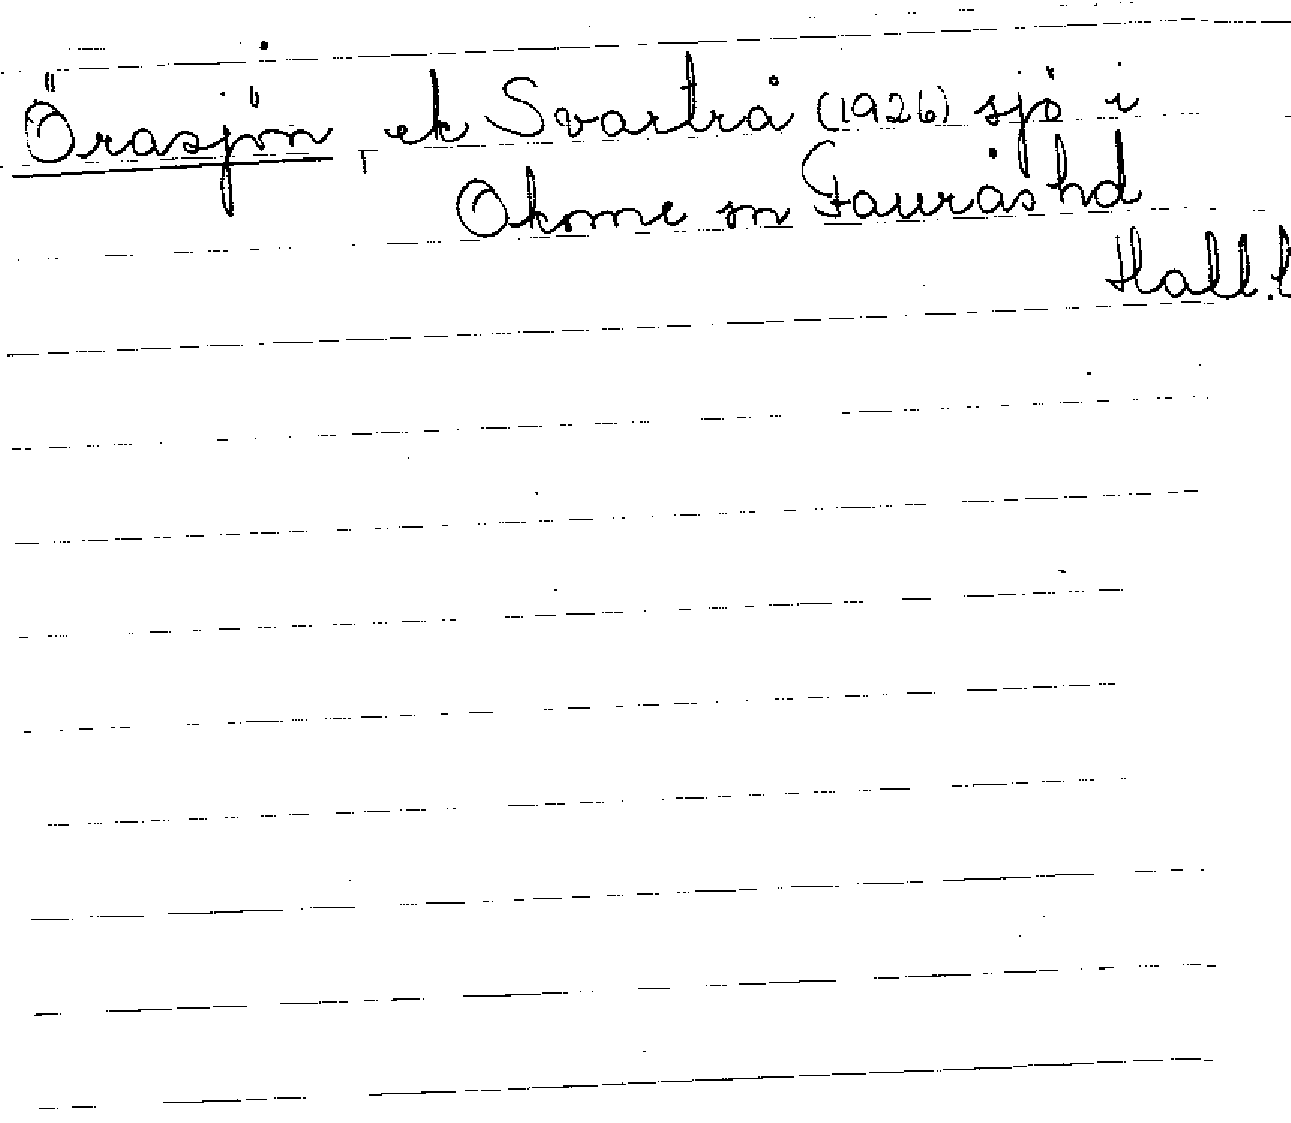 Örasjön, ek Svartrå (1926) sjö i
Okome sn Fauråshd
Hall.l